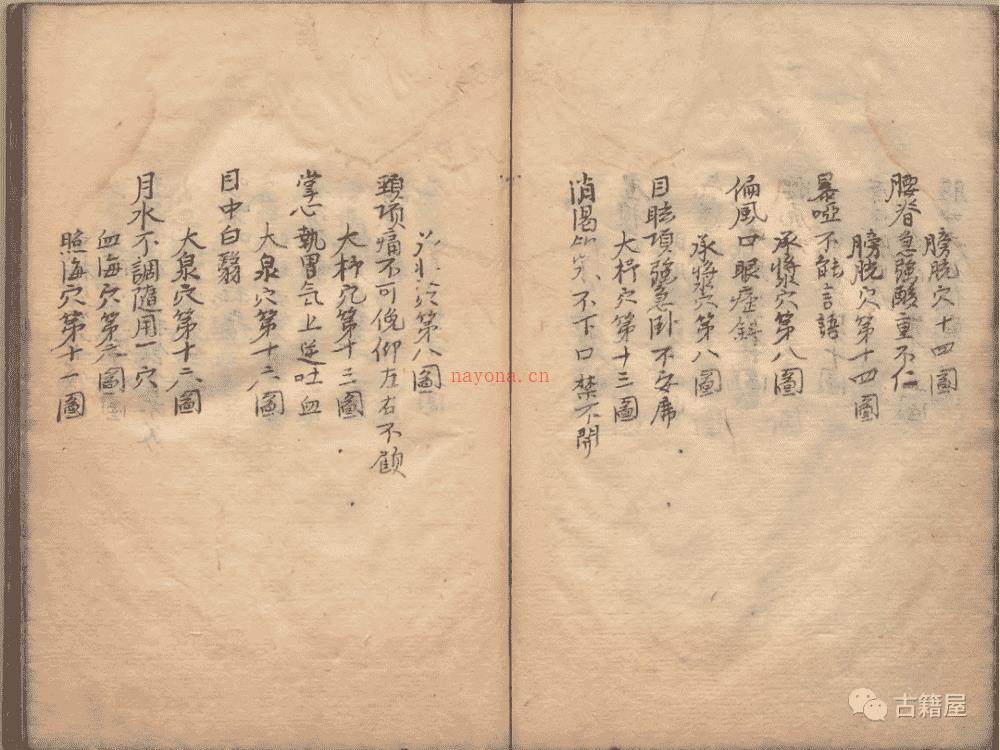 膀胱穴十四圖
腰脊急強酸重不仁
膀胱穴第十四圖
暴啞不能言語
承漿穴第八圖
偏風口眼㖞
承漿穴第八圖
目眩項強急卧不安席
大杼穴第十三圖
消渴不下口禁不開
穴第八圖
頸項痛不可俛仰左右不顧
大杼穴第十三圖
掌心熱胃气上逆吐血
大泉穴第十六圖
目中白翳
大泉穴第十六圖
月水不調隨用一穴
血海穴第六圖
照海穴第十一圖
nayona.cn
古籍屋